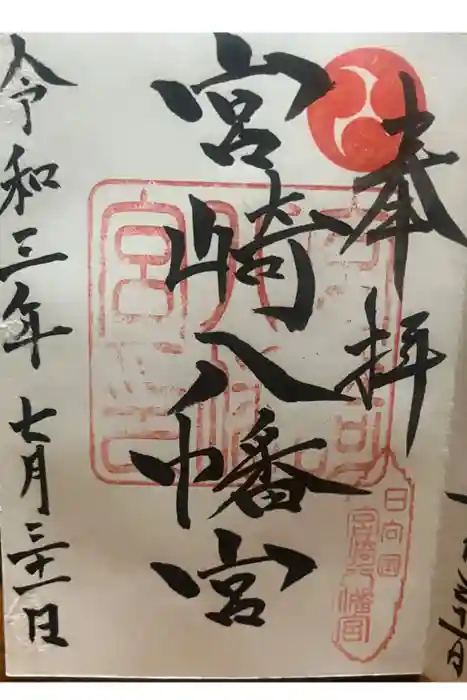 奉拝
宮崎八幡宮
日向国
宮崎八幡宮
令和三年七月三十一日